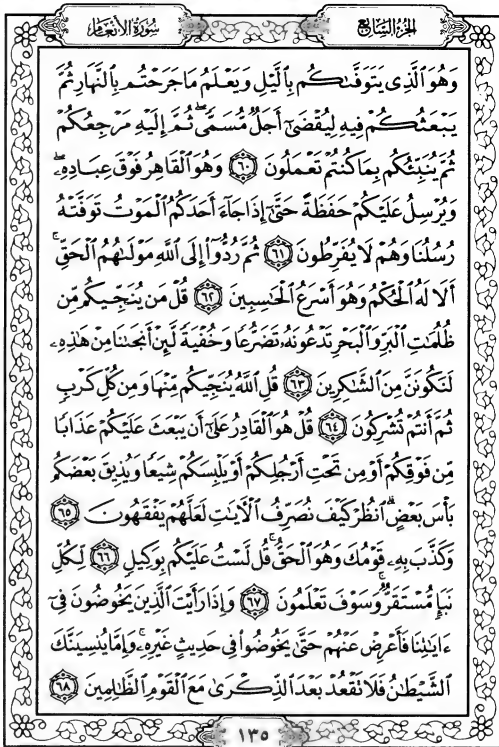 سُورَةُ الأَنْعَام
الجُزْءُ السَّابِعُ
وَهُوَ ٱلَّذِى يَتَوَفَّىٰكُم بِٱلَّيْلِ وَيَعْلَمُ مَا جَرَحْتُم بِٱلنَّهَارِ ثُمَّ
يَبْعَثُكُمْ فِيهِ لِيُقْضَىٰٓ أَجَلٌ مُّسَمًّى ۖ ثُمَّ إِلَيْهِ مَرْجِعُكُمْ
ثُمَّ يُنَبِّئُكُم بِمَا كُنتُمْ تَعْمَلُونَ ٦٠ وَهُوَ ٱلْقَاهِرُ فَوْقَ عِبَادِهِۦ ۖ
وَيُرْسِلُ عَلَيْكُمْ حَفَظَةً حَتَّىٰٓ إِذَا جَآءَ أَحَدَكُمُ ٱلْمَوْتُ تَوَفَّتْهُ
رُسُلُنَا وَهُمْ لَا يُفَرِّطُونَ ٦١ ثُمَّ رُدُّوٓا۟ إِلَى ٱللَّهِ مَوْلَىٰهُمُ ٱلْحَقِّ ۚ
أَلَا لَهُ ٱلْحُكْمُ وَهُوَ أَسْرَعُ ٱلْحَٰسِبِينَ ٦٢ قُلْ مَن يُنَجِّيكُم مِّن
ظُلُمَٰتِ ٱلْبَرِّ وَٱلْبَحْرِ تَدْعُونَهُۥ تَضَرُّعًا وَخُفْيَةً لَّئِنْ أَنجَىٰنَا مِنْ هَٰذِهِۦ
لَنَكُونَنَّ مِنَ ٱلشَّٰكِرِينَ ٦٣ قُلِ ٱللَّهُ يُنَجِّيكُم مِّنْهَا وَمِن كُلِّ كَرْبٍ
ثُمَّ أَنتُمْ تُشْرِكُونَ ٦٤ قُلْ هُوَ ٱلْقَادِرُ عَلَىٰٓ أَن يَبْعَثَ عَلَيْكُمْ عَذَابًا
مِّن فَوْقِكُمْ أَوْ مِن تَحْتِ أَرْجُلِكُمْ أَوْ يَلْبِسَكُمْ شِيَعًا وَيُذِيقَ بَعْضَكُم
بَأْسَ بَعْضٍ ۗ ٱنظُرْ كَيْفَ نُصَرِّفُ ٱلْءَايَٰتِ لَعَلَّهُمْ يَفْقَهُونَ ٦٥
وَكَذَّبَ بِهِۦ قَوْمُكَ وَهُوَ ٱلْحَقُّ ۚ قُل لَّسْتُ عَلَيْكُم بِوَكِيلٍ ٦٦ لِّكُلِّ
نَبَإٍ مُّسْتَقَرٌّ ۚ وَسَوْفَ تَعْلَمُونَ ٦٧ وَإِذَا رَأَيْتَ ٱلَّذِينَ يَخُوضُونَ فِىٓ
ءَايَٰتِنَا فَأَعْرِضْ عَنْهُمْ حَتَّىٰ يَخُوضُوا۟ فِى حَدِيثٍ غَيْرِهِۦ ۚ وَإِمَّا يُنسِيَنَّكَ
ٱلشَّيْطَٰنُ فَلَا تَقْعُدْ بَعْدَ ٱلذِّكْرَىٰ مَعَ ٱلْقَوْمِ ٱلظَّٰلِمِينَ ٦٨
١٣٥